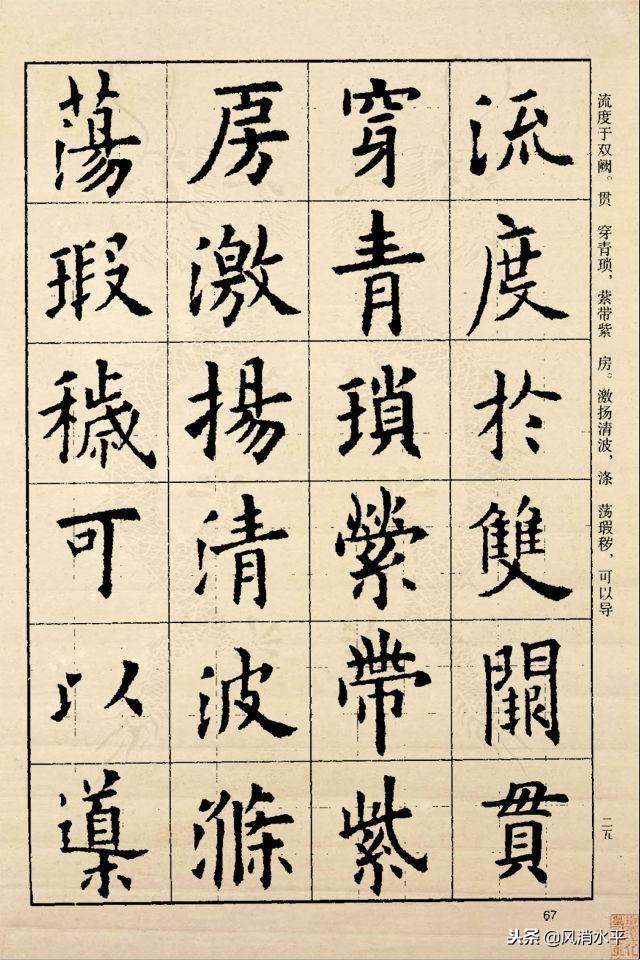 流度于双阙。贯 穿青琐，萦带紫 房。激扬清波，涤 荡瑕秽，可以导
二五
流度於雙闕貫
穿青瑣縈帶紫
房激揚清波滌
蕩瑕穢可以導
67
头条 @风消水平